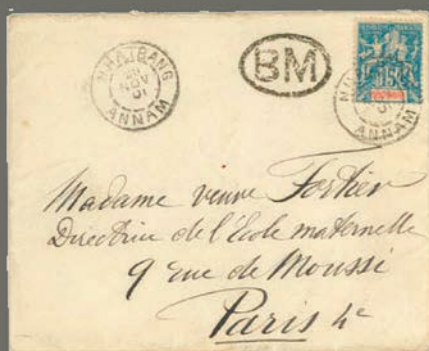 NHATRANG
NOV
01
ANNAM
BM
15
ANNAM
Madame veuve Fortier
Directrice de l'École maternelle
9 rue de Moussi
Paris 4e